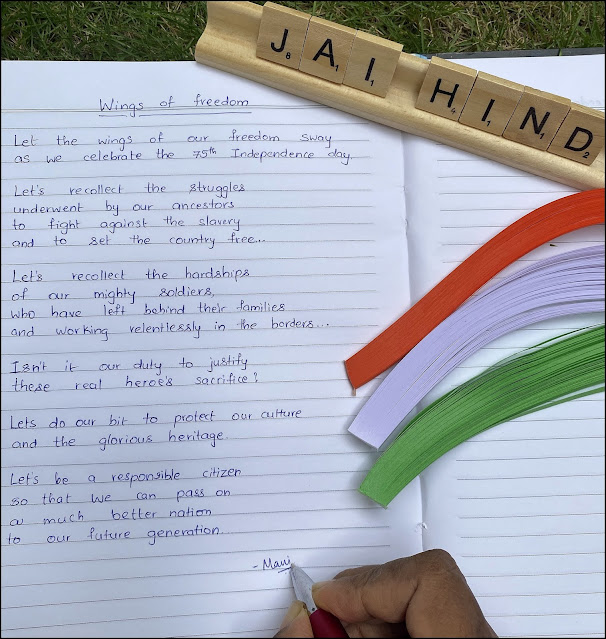 JAI HIND
Wings of freedom
Let the wings of our freedom sway
as we celebrate the 75th Independence day.
Let's recollect the struggles
underwent by our ancestors
to fight against the slavery
and to set the country free...
Let's recollect the hardships
of our mighty soldiers,
who have left behind their families
and working relentlessly in the borders...
Isn't it our duty to justify
these real heroe's sacrifice?
Lets do our bit to protect our culture
and the glorious heritage.
Let's be a responsible citizen
so that we can pass on
a much better nation
to our future generation...